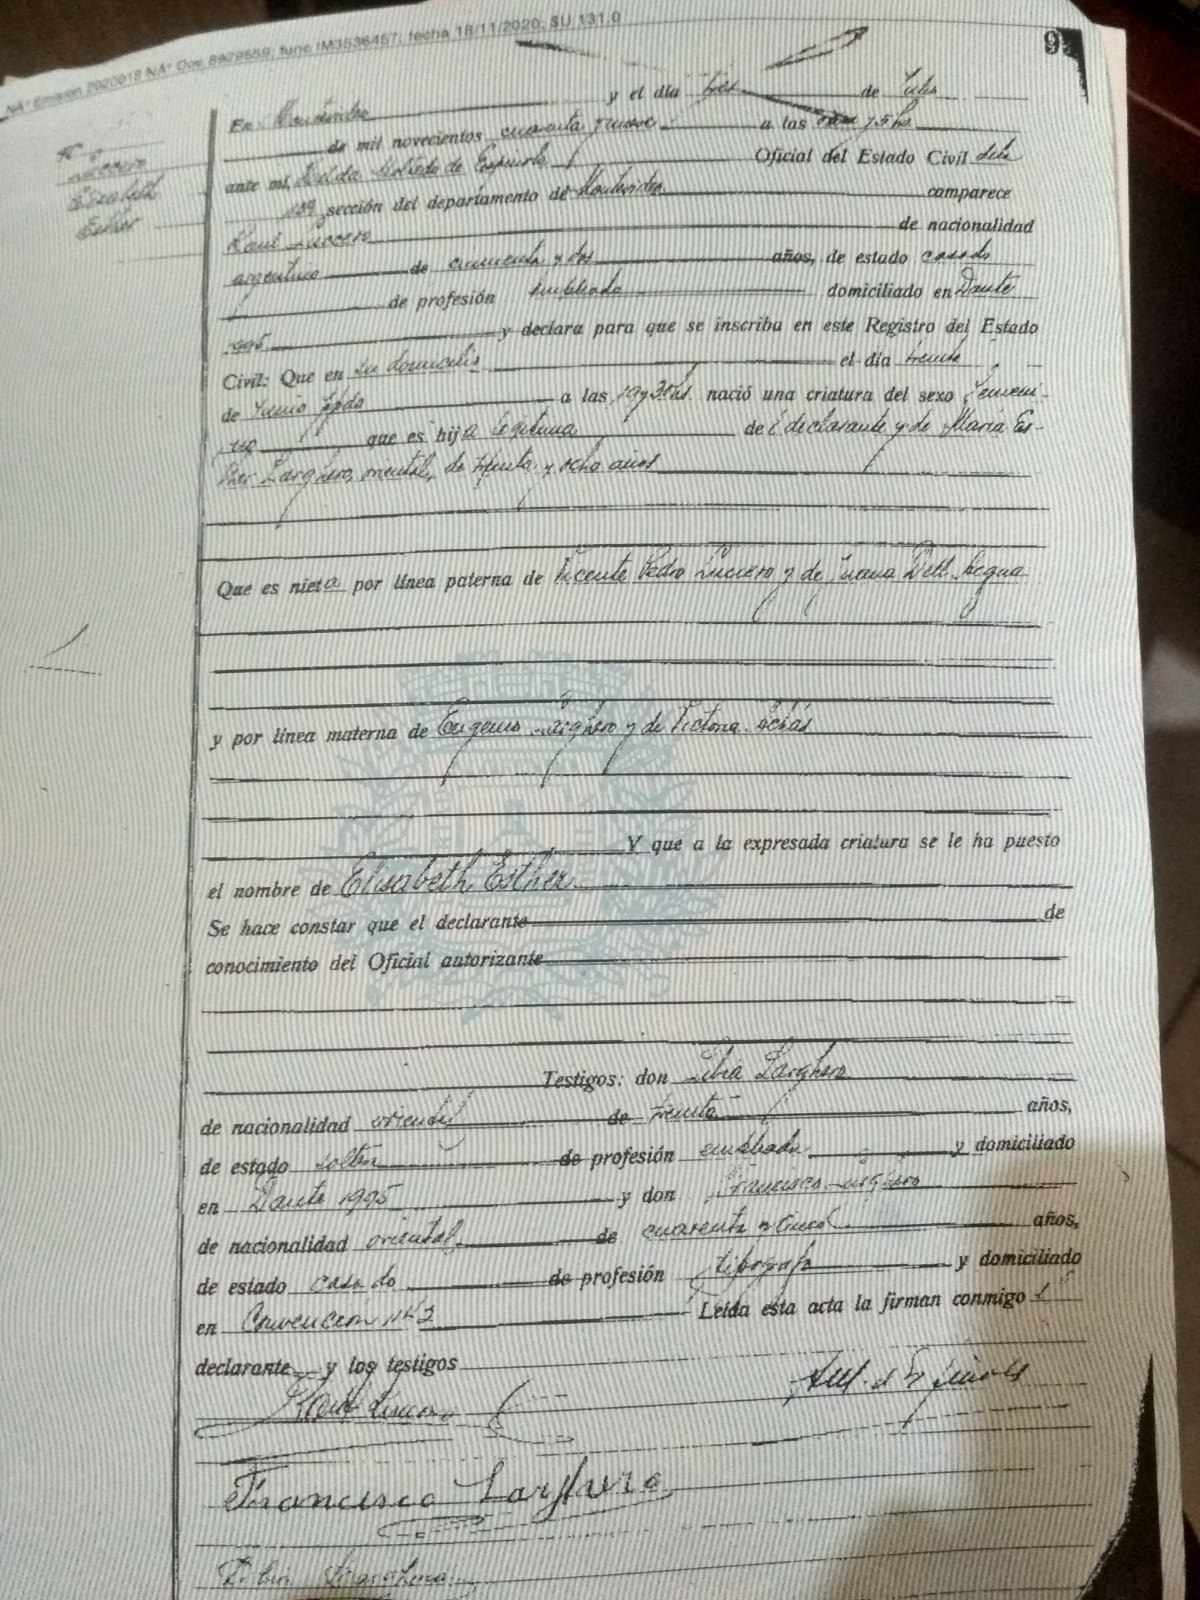 NA° Emisión 2020018 NA° Doc 8929559; func IM3536457; fecha 18/11/2020; $U 131.0
9
En Montevideo y el día tres de Julio
de mil novecientos cuarenta y nueve a las 15 hs
ante mi, de Oficial del Estado Civil de la
13ª sección del departamento de Montevideo comparece
Raul Luccero de nacionalidad
argentino de cincuenta y dos años, de estado casado
de profesión empleado domiciliado en Dante
1995 y declara para que se inscriba en este Registro del Estado
Civil: Que en su domicilio el día treinta
de Junio ppdo a las 19 y 30 hs nació una criatura del sexo femeni-
no que es hija legitima del declarante y de María Es-
ther Larghero, oriental, de treinta y ocho años
Luccero
Elisabeth
Esther
Que es nieta por línea paterna de Vicente Pedro Luccero y de Juana Dell Acqua
y por línea materna de Eugenio Larghero y de Victoria
Y que a la expresada criatura se le ha puesto
el nombre de Elisabeth Esther
Se hace constar que el declarante de
conocimiento del Oficial autorizante
Testigos: don Libia Larghero
de nacionalidad oriental de treinta años,
de estado soltera de profesión empleada y domiciliado
en Dante 1995 y don Francisco Larghero
de nacionalidad oriental de cuarenta y cinco años,
de estado casado de profesión tipografo y domiciliado
en Convención 1142 Leída esta acta la firman conmigo el
declarante y los testigos
Raul Luccero
Francisco Larghero
Libia Larghero